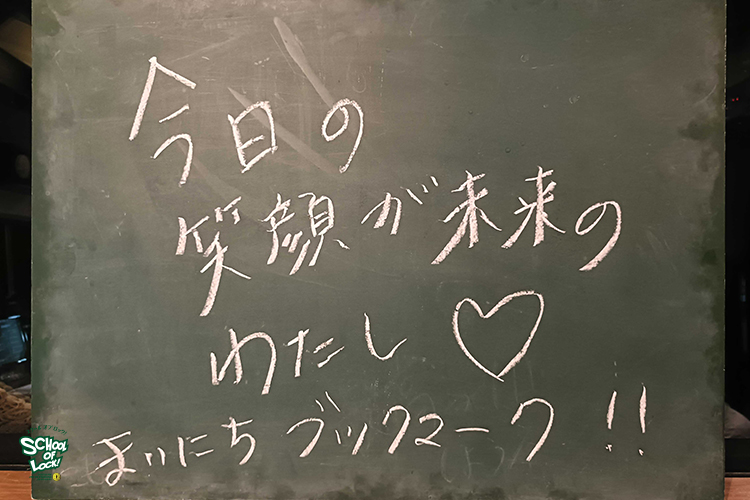 今日の
笑顔が未来の
わたし♡
まいにちブックマーク!!
SCHOOL
OF
LOCK!